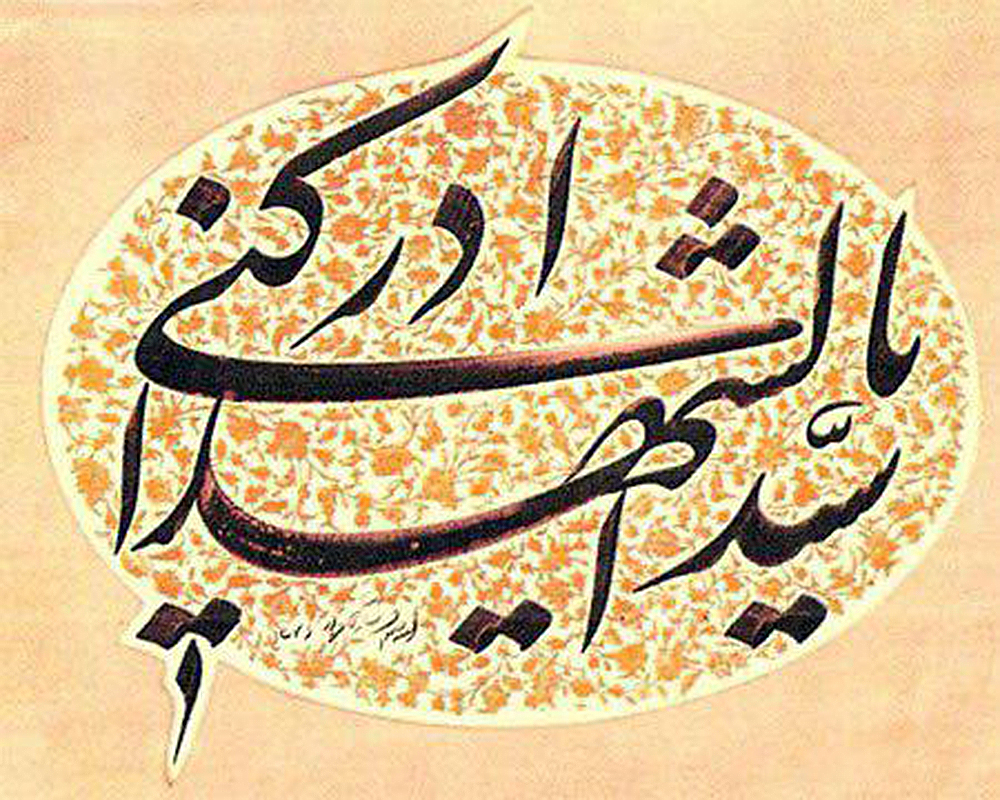 یا سیّد الشهدا
ادرکنی